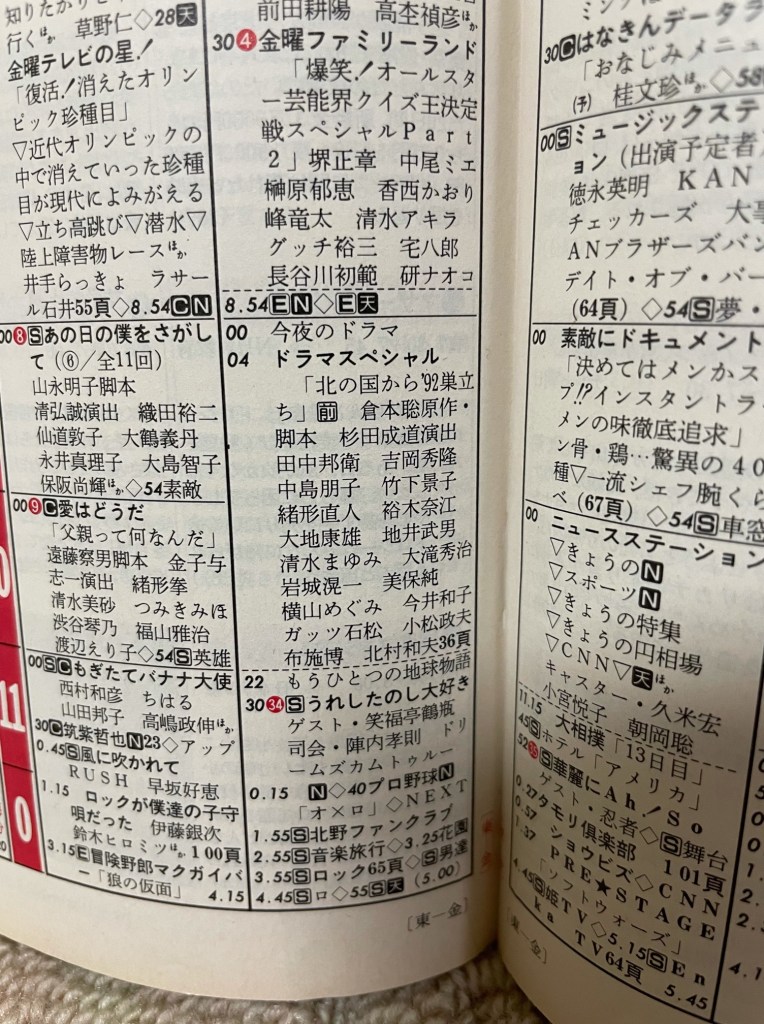 知りたがりビ
行くほか 草野仁◇28天
金曜テレビの星!
「復活!消えたオリン
ピック珍種目」
▽近代オリンピックの
中で消えていった珍種
目が現代によみがえる
▽立ち高跳び▽潜水▽
陸上障害物レースほか
井手らっきょ ラサー
ル石井55頁◇8.54CN
00⑧Sあの日の僕をさがし
て(⑥/全11回)
山永明子脚本
清弘誠演出 織田裕二
仙道敦子 大鶴義丹
永井真理子 大島智子
保阪尚輝ほか◇54素敵
00⑨C愛はどうだ
「父親って何なんだ」
遠藤察男脚本 金子与
志一演出 緒形拳
清水美砂 つみきみほ
渋谷琴乃 福山雅治
渡辺えり子◇54S英雄
00SCもぎたてバナナ大使
西村和彦 ちはる
山田邦子 高嶋政伸ほか
30C筑紫哲也N23◇アップ
0.45S風に吹かれて
RUSH 早坂好恵
1.15 ロックが僕達の子守
唄だった 伊藤銀次
鈴木ヒロミツほか100頁
3.15E冒険野郎マクガイバ
ー「狼の仮面」 4.15
11
0
前田耕陽 高杢禎彦ほか
30④金曜ファミリーランド
「爆笑!オールスタ
ー芸能界クイズ王決定
戦スペシャルPart
2」堺正章 中尾ミエ
榊原郁恵 香西かおり
峰竜太 清水アキラ
グッチ裕三 宅八郎
長谷川初範 研ナオコ
8.54EN◇E天
00 今夜のドラマ
04 ドラマスペシャル
「北の国から'92巣立
ち」前 倉本聰原作・
脚本 杉田成道演出
田中邦衛 吉岡秀隆
中島朋子 竹下景子
緒形直人 裕木奈江
大地康雄 地井武男
清水まゆみ 大滝秀治
岩城滉一 美保純
横山めぐみ 今井和子
ガッツ石松 小松政夫
布施博 北村和夫36頁
22 もうひとつの地球物語
30㉞Sうれしたのし大好き
ゲスト・笑福亭鶴瓶
司会・陣内孝則 ドリ
ームズカムトゥルー
0.15 N◇40プロ野球N
「オ×ロ」◇NEXT
1.55S北野ファンクラブ
2.55S音楽旅行◇3.25花園
3.55Sロック65頁◇S男達
4.45Sロ◇55S天 (5.00)
[東一金]
30Cはなきんデータラ
「おなじみメニュ
(予) 桂文珍ほか◇58
00Sミュージックステ
ョン(出演予定者)
徳永英明 KAN
チェッカーズ 大事
ANブラザーズバン
デイト・オブ・バー
(64頁)◇54S夢・
00 素敵にドキュメント
「決めてはメンかス
プ!?インスタントラ
メンの味徹底追求」
ン骨・鶏…驚異の40
種▽一流シェフ腕くら
ベ(67頁)◇54S車窓
00 ニュースステーション
▽きょうのN
▽スポーツN
▽きょうの特集
▽きょうの円相場
▽CNN▽天ほか
キャスター・久米宏
小宮悦子 朝岡聡
11.15 大相撲「13日目」
45Sホテル「アメリカ」
52㉟S華麗にAh!So
ゲスト・忍者◇S舞台
0.27タモリ倶楽部 101頁
0.57 ショウビズ◇CNN
1.37 PRE★STAGE
「ソフトウォーズ」
4.45S姫TV◇5.15SEn
ka TV64頁 5.45
[東一金]